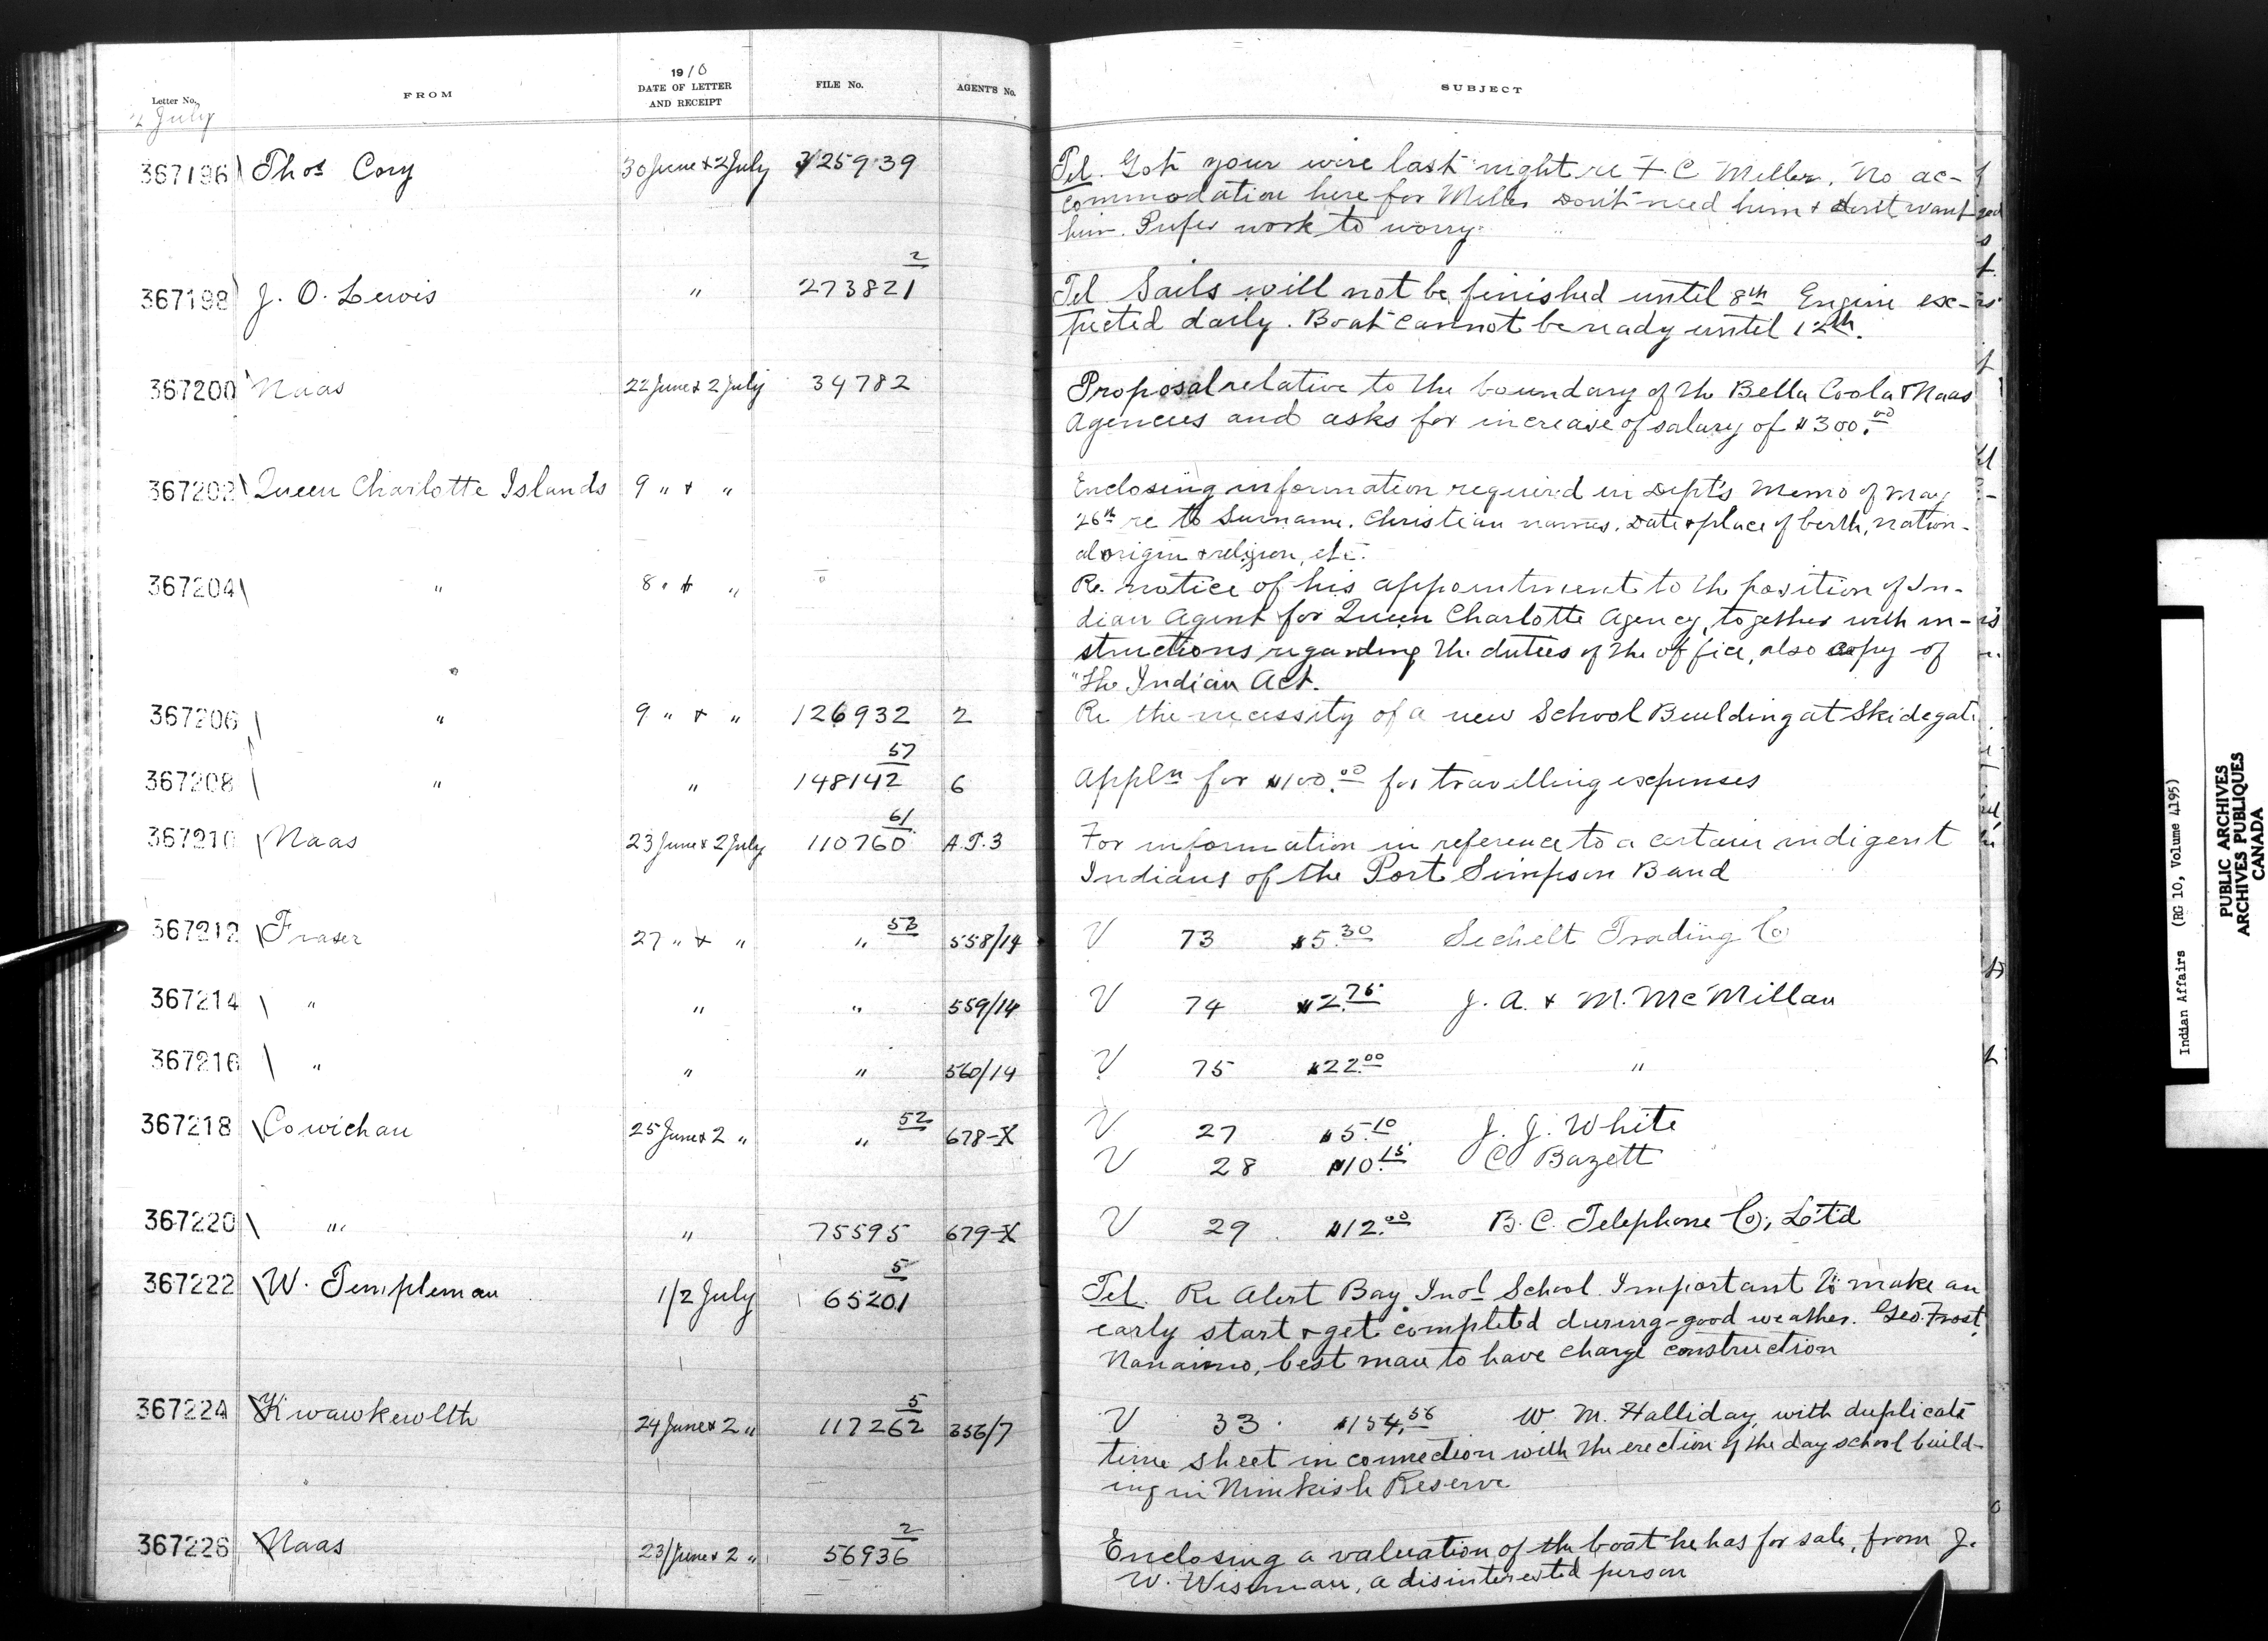 Letter No. FROM 1910 DATE OF LETTER AND RECEIPT FILE No. AGENT'S No. SUBJECT
2 July
367196 Thos Cory 30 June & 2 July 325939 Tel. Got your wire last night re F. C Miller. No ac-
commodation here for Miller Don't need him & don't want
him. Prefer work to worry.
2
367198 J. O. Lewis " 273821 Tel Sails will not be finished until 8th Engine ex-
pected daily. Boat cannot be ready until 12th.
367200 Naas 22 June & 2 July 34782 Proposal relative to the boundary of the Bella Coola & Naas
Agencies and asks for increase of salary of $300.00
367202 Queen Charlotte Islands 9 " & " Enclosing information required in Dept's Memo of May
26th re to Surname. Christian names. Date & place of berth, nation-
al origin & religion, etc.
367204 " 8 " & " Re. notice of his appointment to the position of In-
dian Agent for Queen Charlotte Agency, together with in-
structions regarding the duties of the office, also copy of
"The Indian Act.
367206 " 9 " & " 126932 2 Re the necessity of a new School Building at Skidegate
57
367208 " " 148142 6 Appln for $100.00 for travelling expenses
61
367210 Naas 23 June & 2 July 110760 A.T.3 For information in reference to a certain indigent
Indians of the Port Simpson Band
53
367212 Fraser 27 " & " " 558/14 V 73 $5.30 Sechelt Trading Co
367214 " " " 559/14 V 74 $2.75 J. A. & M. McMillan
367216 " " " 560/14 V 75 $22.00 "
52
367218 Cowichan 25 June & 2 " " 678-X V 27 $5.10 J. J. White
V 28 $10.15 C Bazett
367220 " " 75595 679-X V 29 $12.00 B. C. Telephone Co., L'td
5
367222 W. Templeman 1/2 July 65201 Tel. Re Alert Bay Indl School. Important to make an
early start & get completed during good weather. Geo. Frost,
Nanaimo, best man to have charge construction
5
367224 Kwawkewlth 24 June & 2 " 117262 336/7 V 33. $154.56 W. M. Halliday, with duplicate
time sheet in connection with the erection of the day school build-
ing in Nimkish Reserve
2
367226 Naas 23/June & 2 " 56936 Enclosing a valuation of the boat he has for sale, from J.
W. Wiseman, a disinterested person
Indian Affairs (RG 10, Volume 4195)
PUBLIC ARCHIVES
ARCHIVES PUBLIQUES
CANADA